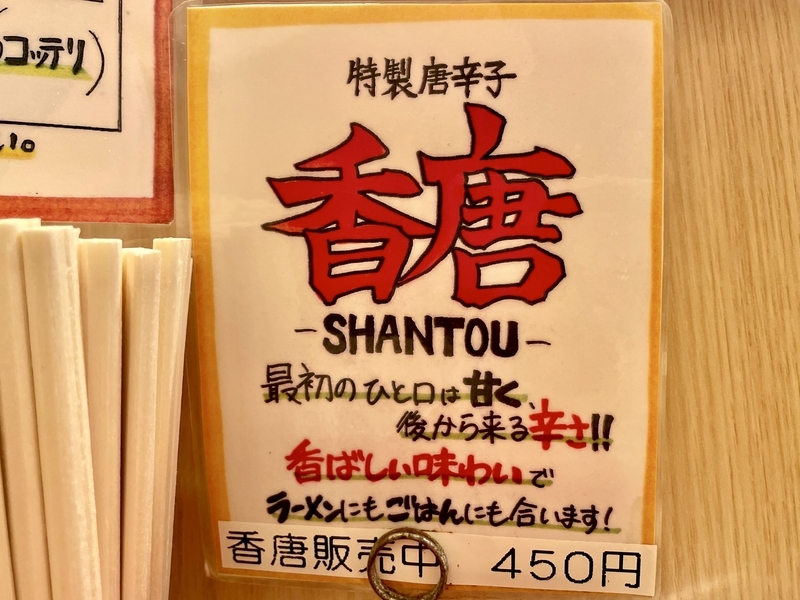 コッテリ)
い。
特製唐辛子
香唐
-SHANTOU-
最初のひと口は甘く、
後から来る辛さ!!
香ばしい味わいで
ラーメンにもごはんにも合います!
香唐販売中 450円